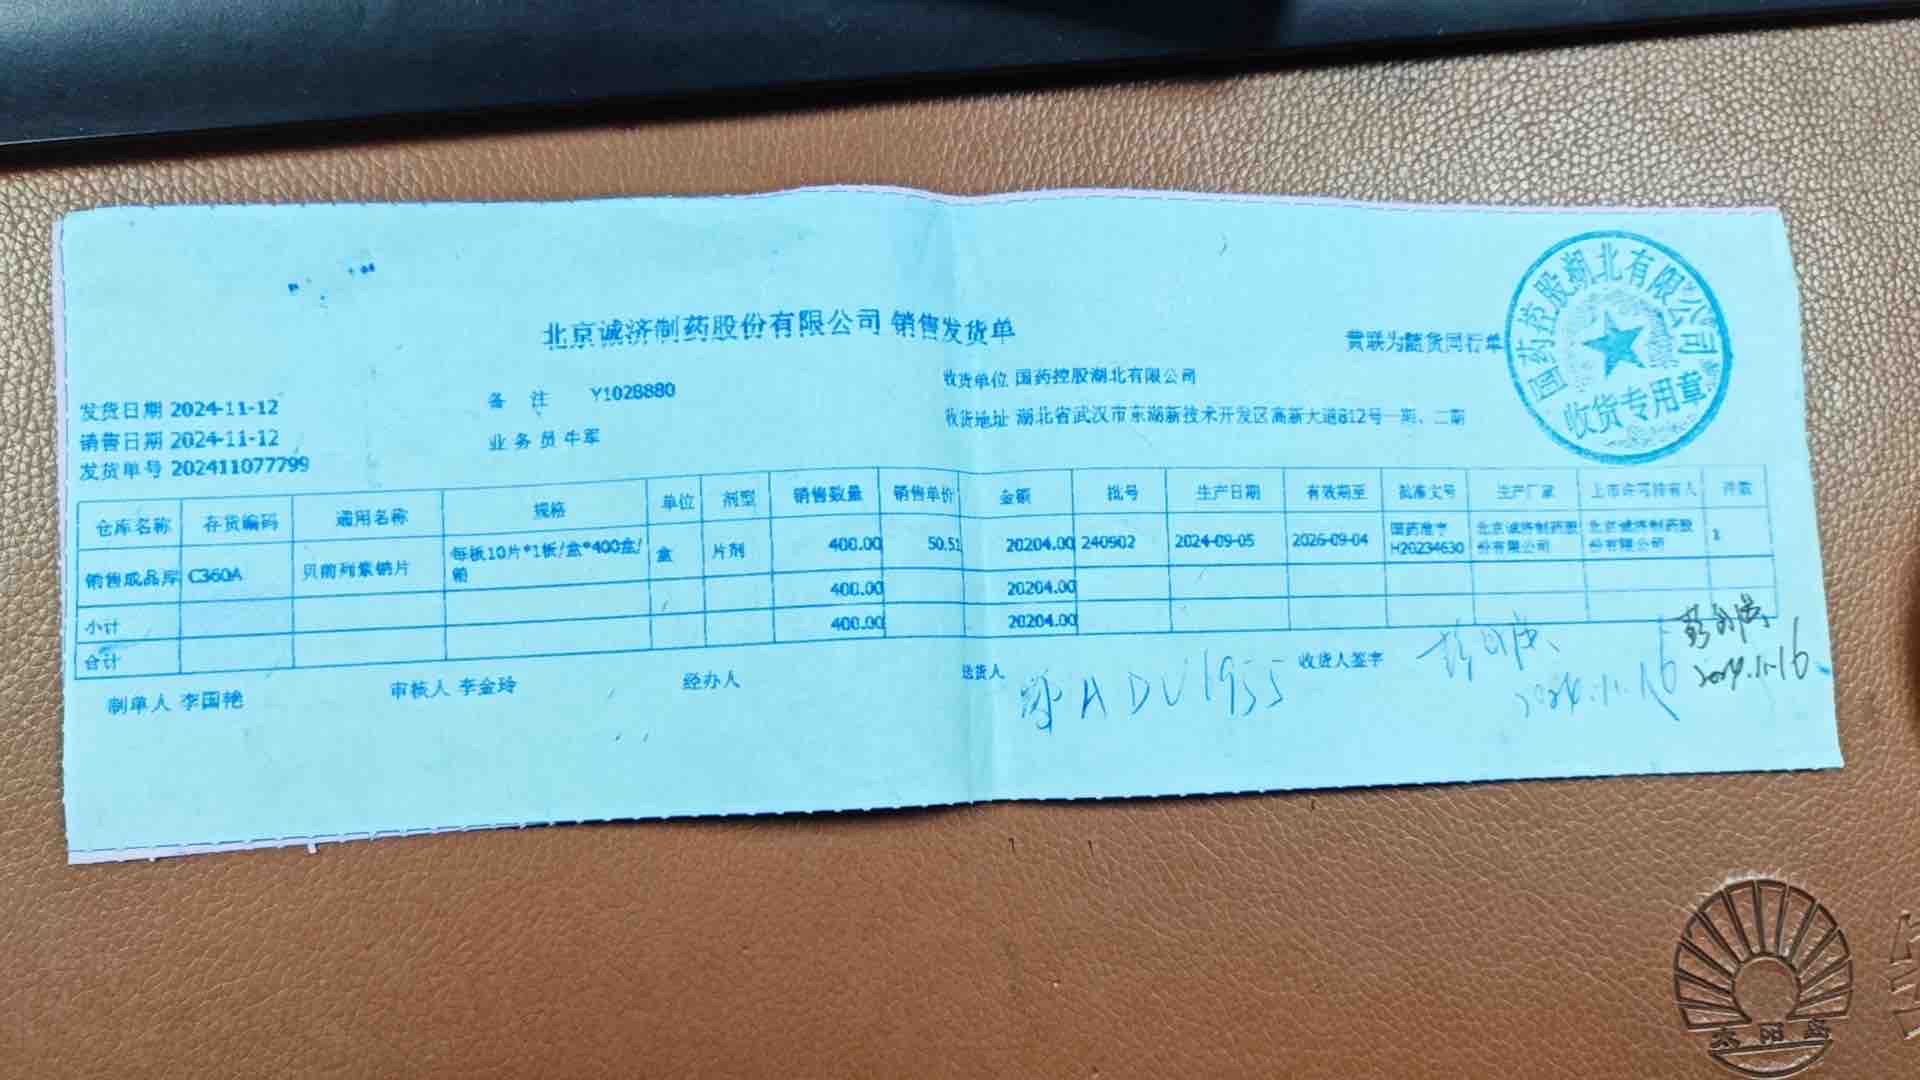 北京诚济制药股份有限公司 销售发货单
黄联为随货同行单
国药控股湖北有限公司
收货专用章
发货日期 2024-11-12
备 注 Y1028880
收货单位 国药控股湖北有限公司
销售日期 2024-11-12
业务员 牛军
收货地址 湖北省武汉市东湖新技术开发区高新大道812号一期、二期
发货单号 202411077799
仓库名称 存货编码 通用名称 规格 单位 剂型 销售数量 销售单价 金额 批号 生产日期 有效期至 批准文号 生产厂家 上市许可持有人 件数
销售成品库 C360A 贝前列素钠片 每板10片*1板/盒*400盒/箱 盒 片剂 400.00 50.51 20204.00 240902 2024-09-05 2026-09-04 国药准字H20234630 北京诚济制药股份有限公司 北京诚济制药股份有限公司 1
小计 400.00 20204.00
合计 400.00 20204.00
制单人 李国艳 审核人 李金玲 经办人 送货人 ADU1955 收货人签字
2024.11.16
2024.11.16
太阳岛